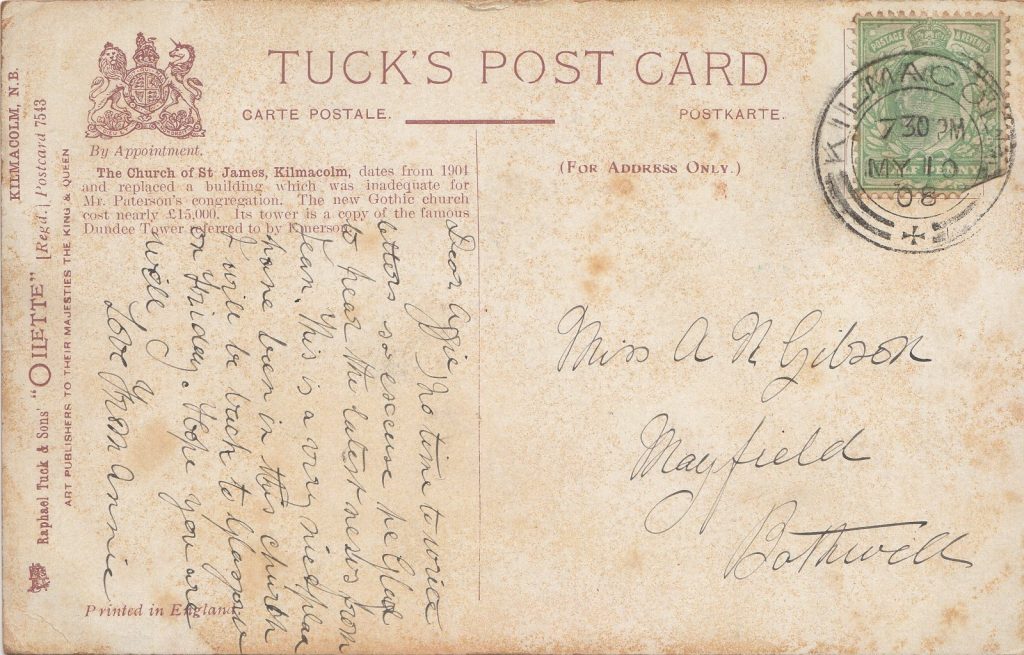 TUCK'S POST CARD
CARTE POSTALE.
POSTKARTE.
By Appointment.
(FOR ADDRESS ONLY.)
The Church of St James, Kilmacolm, dates from 1904
and replaced a building which was inadequate for
Mr. Paterson's congregation. The new Gothic church
cost nearly £15,000. Its tower is a copy of the famous
Dundee Tower referred to by Emerson.
KILMACOLM, N.B.
Raphael Tuck & Sons' "OILETTE" [Regd.] Postcard 7543
ART PUBLISHERS TO THEIR MAJESTIES THE KING & QUEEN
Printed in England
POSTAGE & REVENUE
KILMACOLM
7 30 PM
MY 10
08
Dear Aggie, no time to write
letters so excuse me Glad
to hear the latest news from
Jean. This is a very nice place
have been in this church
I will be back to Glasgow
on Friday. Hope you are
well
Love from Annie
Miss A N Gibson
Mayfield
Bothwell